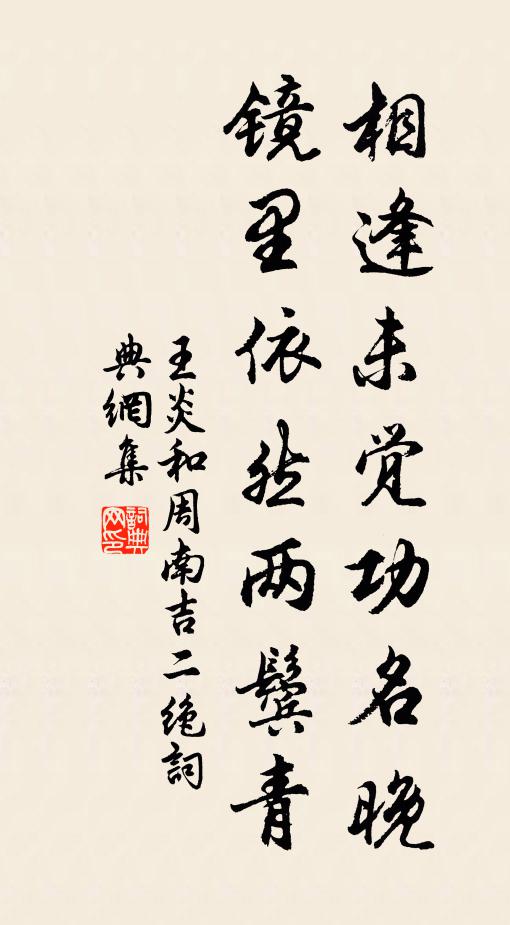 相逢未觉功名晚
镜里依然两鬓青
王炎和周南吉二绝詞
典網集
詞典网印